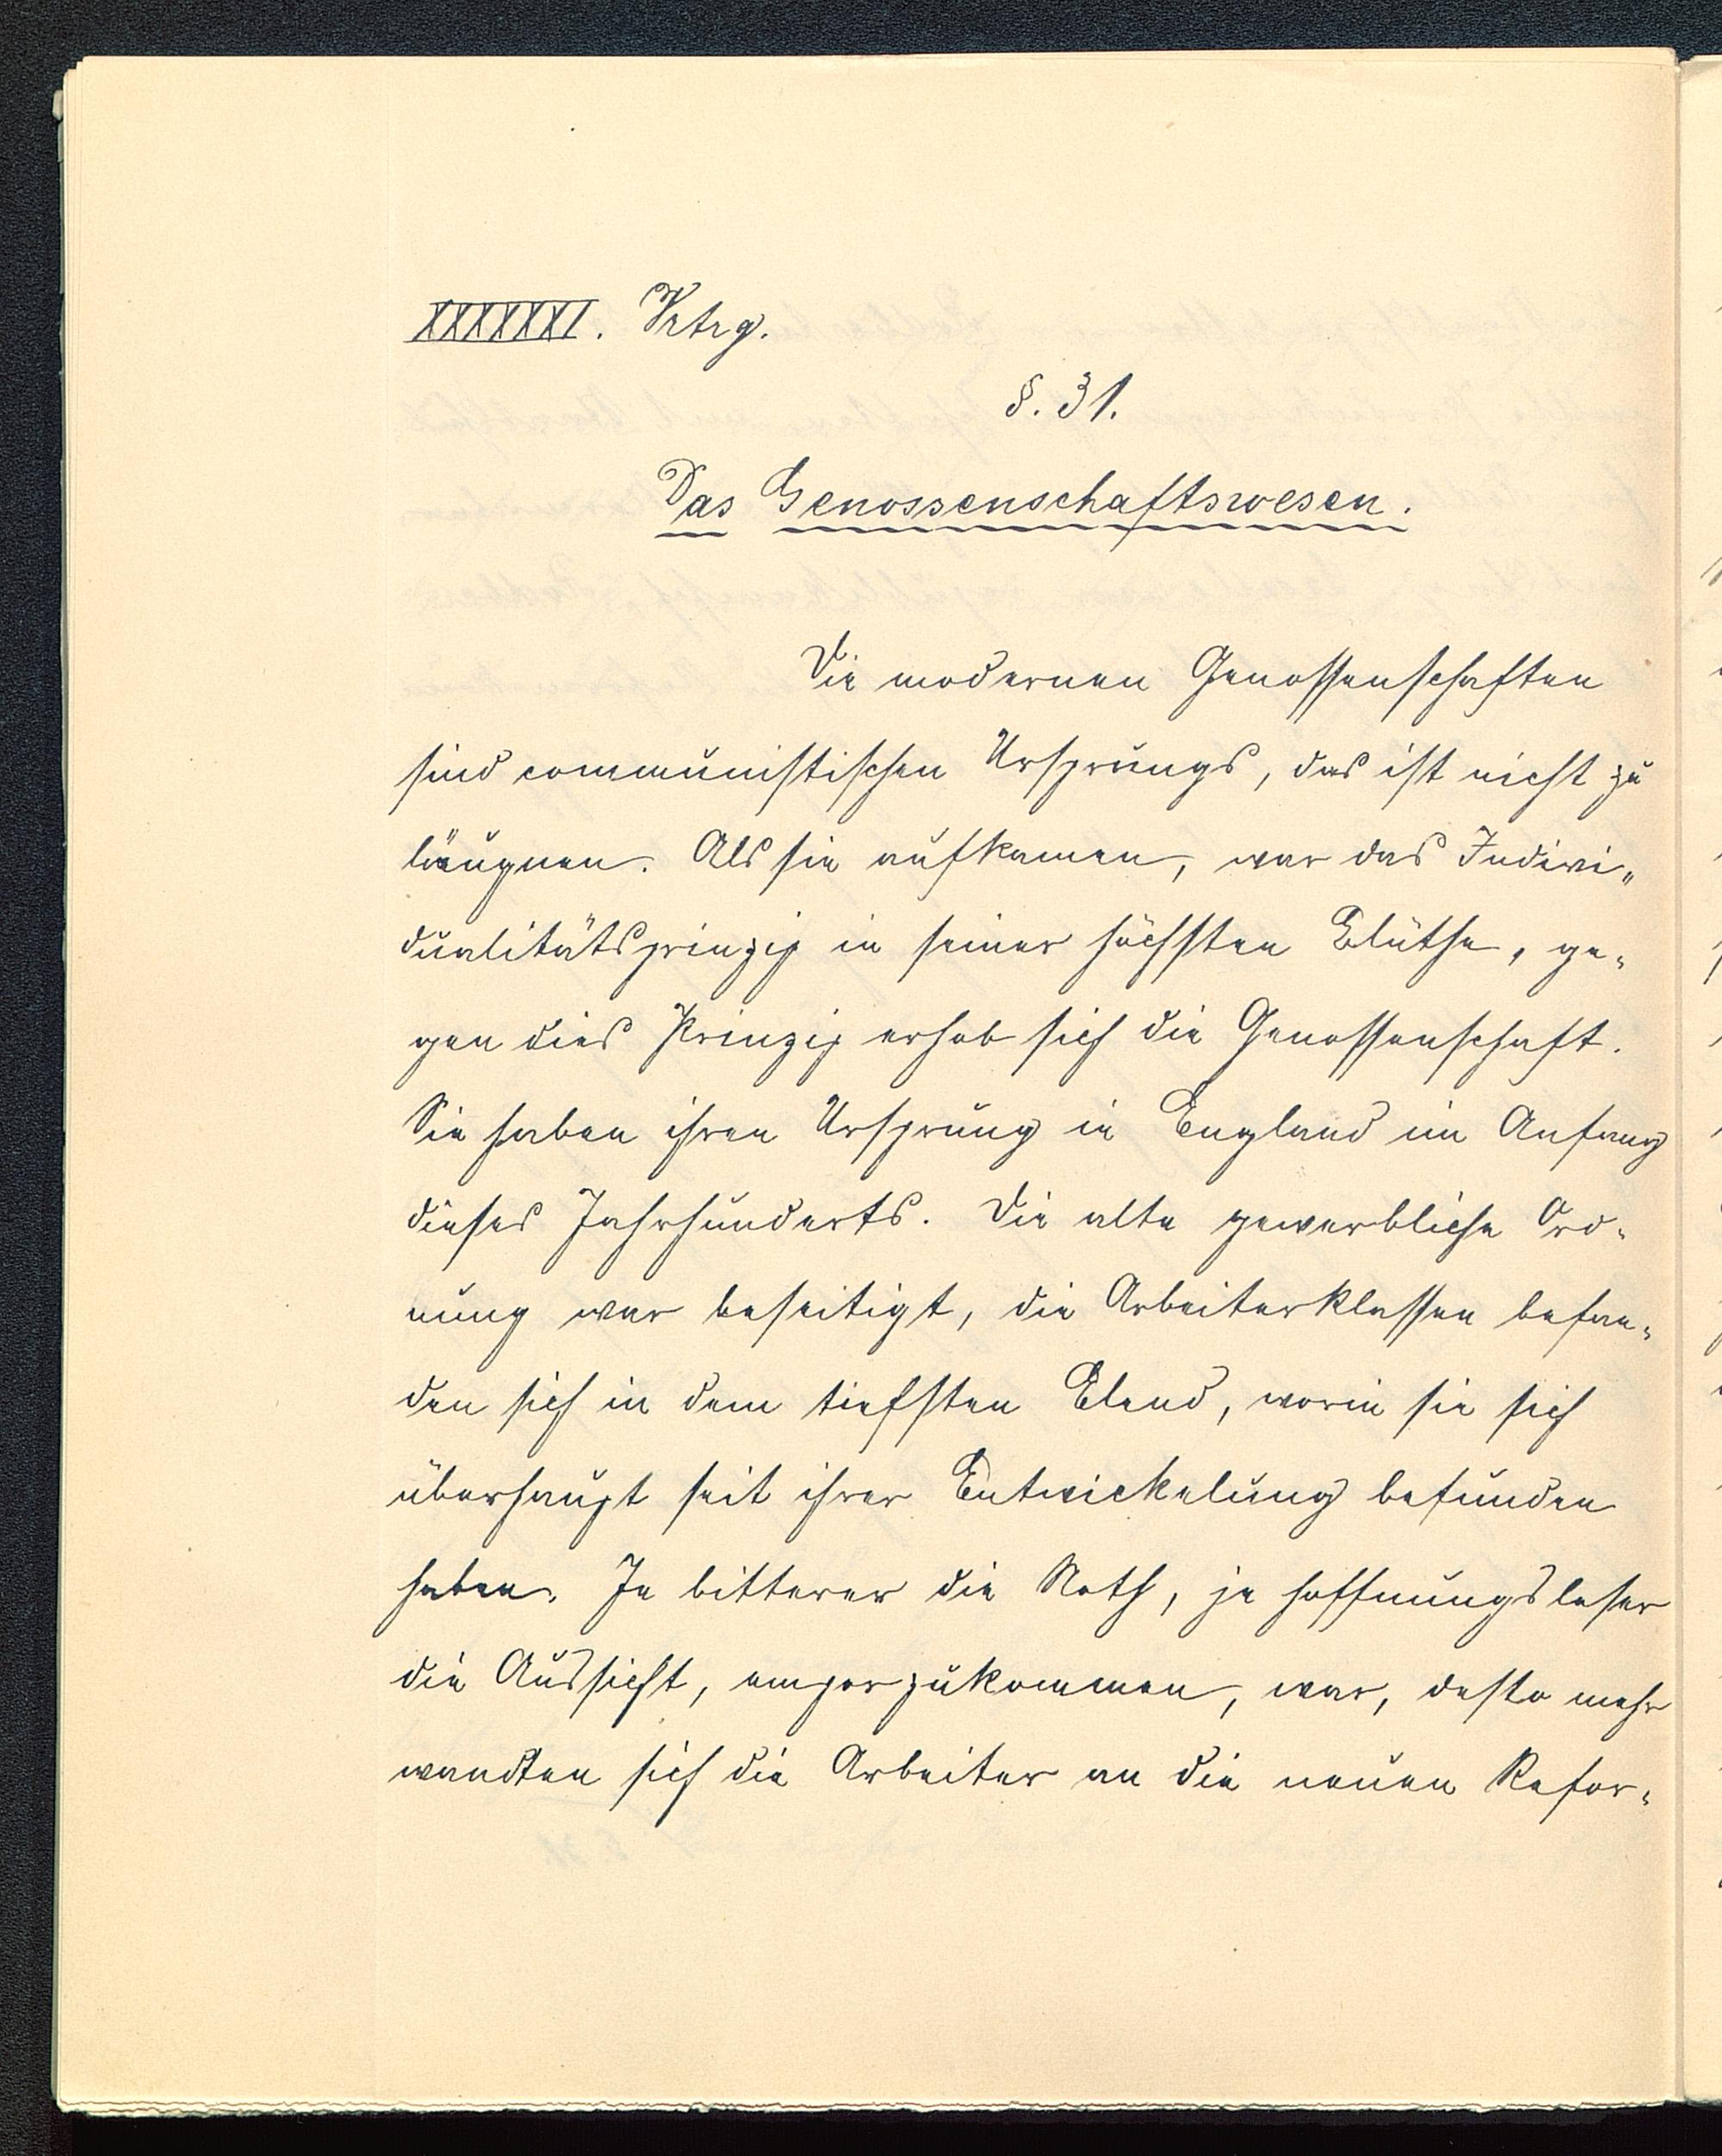 XXXXXXI. Vrtrg.
§. 31.
Das Genossenschaftswesen.
Die modernen Genossenschaften
sind communistischen Ursprungs, das ist nicht zu
läugnen. Als sie aufkamen, war das Indivi„
dualitätsprinzip in seiner höchsten Blüthe, ge„
gen dies Prinzip erhob sich die Genossenschaft.
Sie haben ihren Ursprung in England im Anfang
dieses Jahrhunderts. Die alte gewerbliche Ord„
nung war beseitigt, die Arbeiterklassen befan„
den sich in dem tiefsten Elend, worin sie sich
überhaupt seit ihrer Entwickelung befunden
haben. Je bitterer die Noth, je hoffnungsloser
die Aussicht, emporzukommen, war, desto mehr
wandten sich die Arbeiter an die neuen Refor„